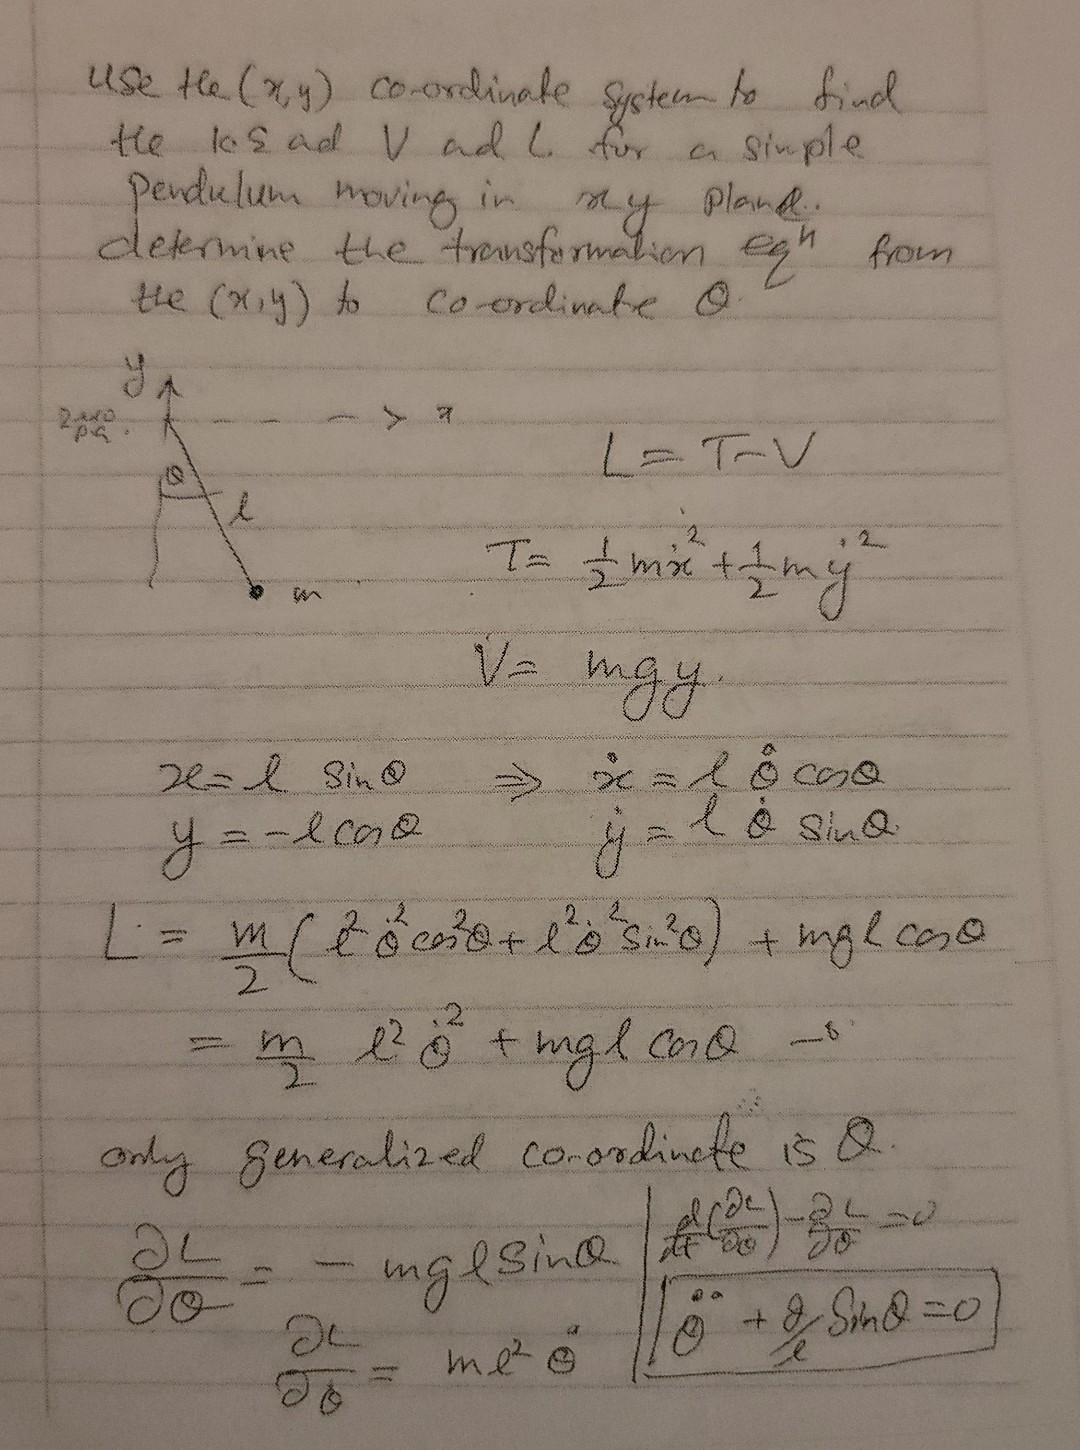 Use the (x,y) co-ordinate system to find
the K.E ad V ad L for a simple
pendulum moving in xy plane.
determine the transformation eqⁿ from
the (x,y) to co-ordinate θ.
y
zero
x
θ
l
m
L = T - V
T = 1/2 mẋ² + 1/2 mẏ²
V = mgy.
x = l sinθ ⇒ ẋ = l θ̇ cosθ
y = -l cosθ ẏ = l θ̇ sinθ
L = m/2 (l² θ̇² cos²θ + l² θ̇² sin²θ) + mgl cosθ
= m/2 l² θ̇² + mgl cosθ
only generalized co-ordinate is θ.
∂L/∂θ = - mgl sinθ
∂L/∂θ̇ = ml² θ̇
d/dt (∂L/∂θ̇) - ∂L/∂θ = 0
θ̈ + g/l sinθ = 0